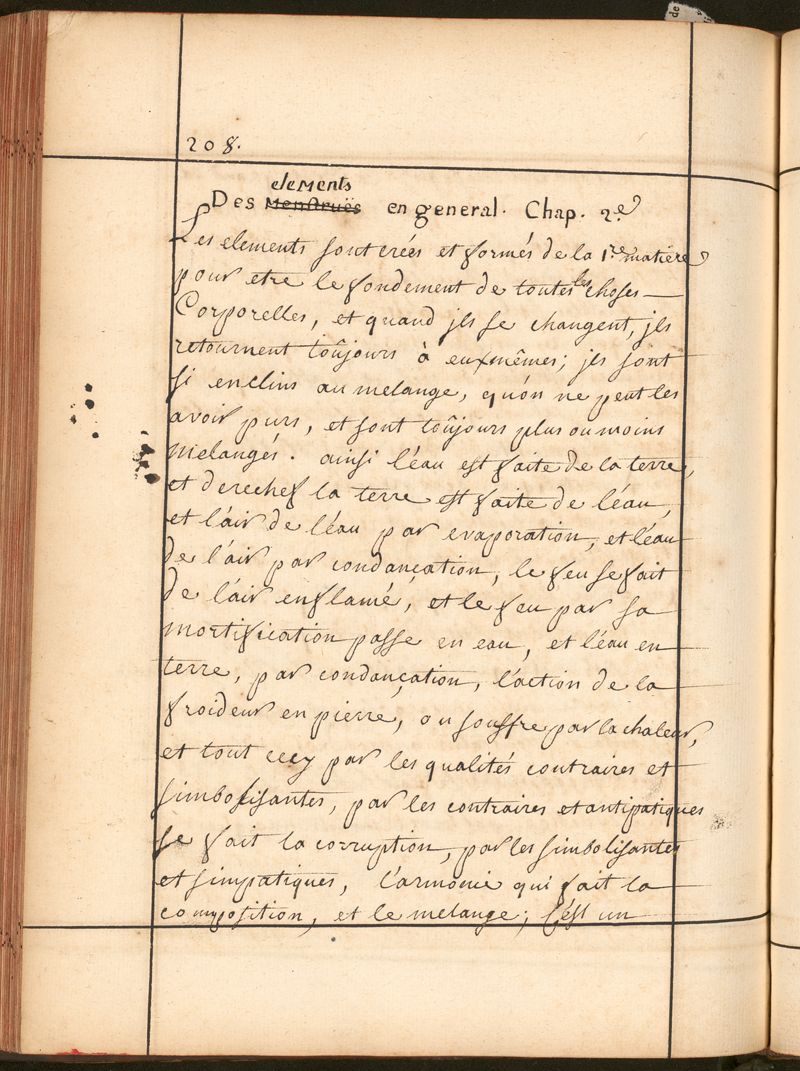 208.
elements
Des Menstruës en general. Chap. 2.e
Les elements sont crées et formés de la 1.re matiere
pour etre le fondement de toutes les choses
Corporelles, et quand jls se changent, jls
retournent toûjours à eux mêmes; jls sont
si enclins au melange, qu'on ne peut les
avoir purs, et sont toûjours plus ou moins
melangés. ainsi l'eau est faite de la terre,
et derechef la terre est faite de l'eau,
et l'air de l'eau par evaporation, et l'eau
de l'air par condançation, le feu se fait
de l'air enflamé, et le feu par sa
mortification passe en eau, et l'eau en
terre, par condançation, l'action de la
froideur en pierre, ou souffre par la chaleur,
et tout cecy par les qualités contraires et
simbolisantes, par les contraires et antipatiques
se fait la corruption, par les simbolisantes
et simpatiques, l'armonie qui fait la
composition, et le melange; c'est un
de